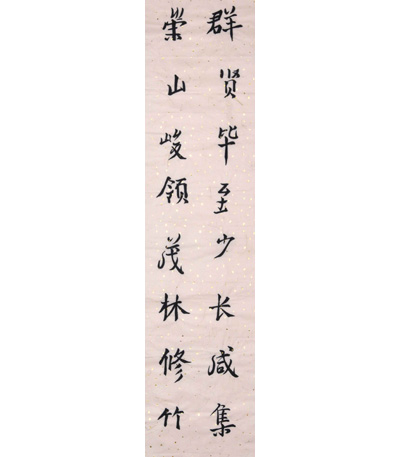 群贤毕至少长咸集
崇山峻領茂林修竹